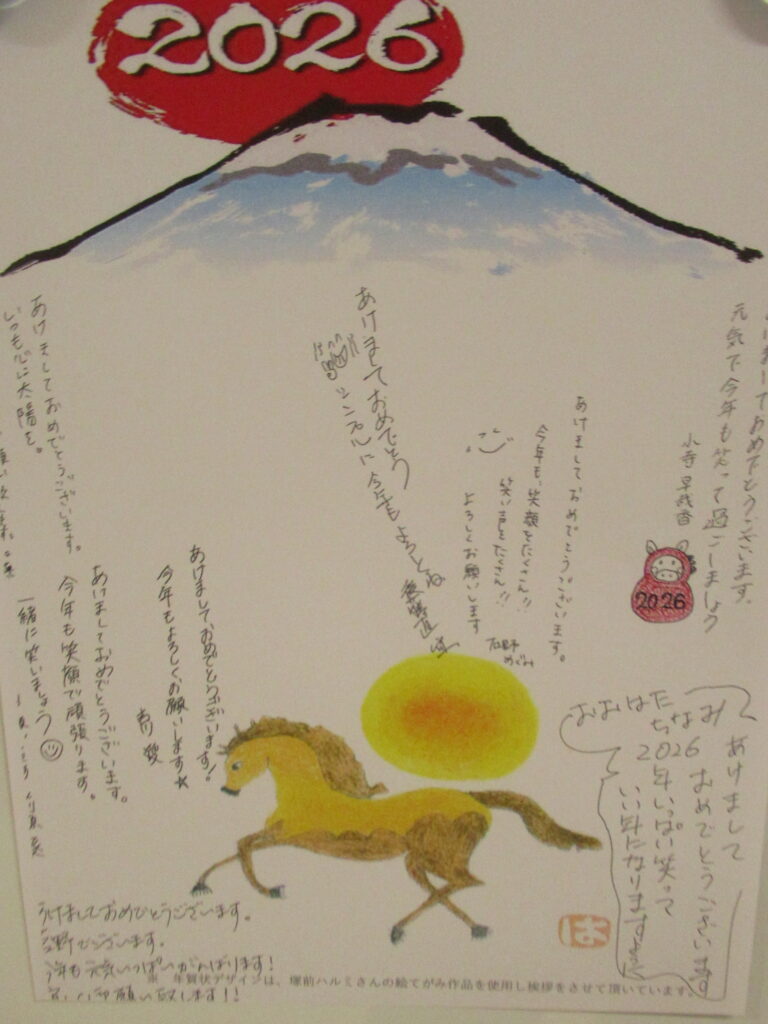 2026
あけましておめでとうございます。
元気で今年も笑って過ごしましょう
小寺
2026
あけましておめでとうございます。
今年も、笑顔をたくさん!!
笑い声をたくさん!!
よろしくお願いします
石野
めぐみ
あけましておめでとう
シンプルに今年もよろしくね
あけましておめでとうございます。
いつも心に太陽を。
あけましておめでとうございます!
今年もよろしくお願いします★
あけましておめでとうございます。
今年も笑顔で頑張ります。
一緒に笑いましょう
おおはた
ちなみ
あけまして
おめでとうございます
2026年いっぱい笑って
いい年になりますように
あけましておめでとうございます。
今年も元気いっぱいがんばります!
は
※ 年賀状デザインは、塚前ハルミさんの絵てがみ作品を使用し挨拶をさせて頂いています。